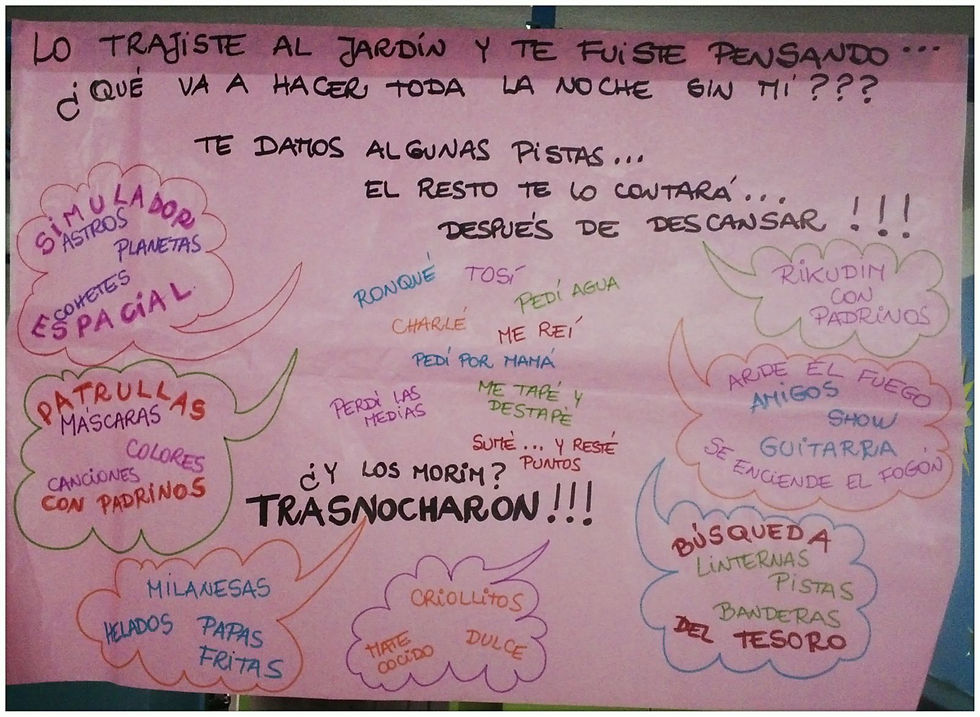 LO TRAJISTE AL JARDÍN Y TE FUISTE PENSANDO...
¿QUÉ VA A HACER TODA LA NOCHE SIN MÍ???
TE DAMOS ALGUNAS PISTAS...
EL RESTO TE LO CONTARÁ...
DESPUÉS DE DESCANSAR!!!
SIMULADOR
ASTROS
PLANETAS
COHETES
ESPACIAL
RONQUÉ
TOSÍ
PEDÍ AGUA
CHARLÉ
ME REÍ
PEDÍ POR MAMÁ
PERDÍ LAS
MEDIAS
ME TAPÉ Y
DESTAPÉ
SUMÉ... Y RESTÉ
PUNTOS
RIKUDIM
CON
PADRINOS
PATRULLAS
MÁSCARAS
COLORES
CANCIONES
CON PADRINOS
ARDE EL FUEGO
AMIGOS
SHOW
GUITARRA
SE ENCIENDE EL FOGÓN
¿Y LOS MORIM?
TRASNOCHARON!!!
MILANESAS
HELADOS
PAPAS
FRITAS
CRIOLLITOS
MATE
COCIDO
DULCE
BÚSQUEDA
LINTERNAS
PISTAS
BANDERAS
DEL TESORO